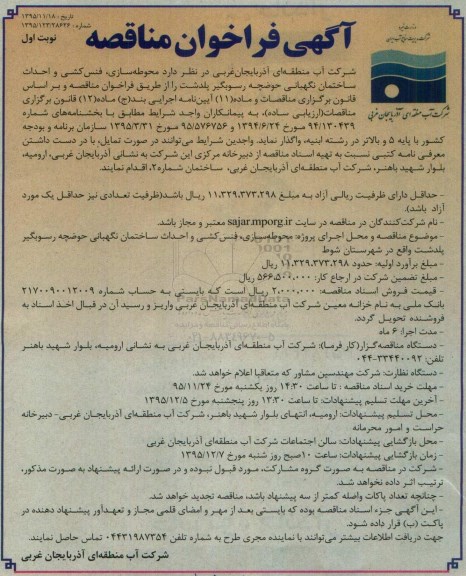 تاریخ : ۱۳۹۵/۱۱/۱۸
شماره : ۱۳۹۵/۱۲۳/۲۸۶۲۶
نوبت اول
آگهی فراخوان مناقصه
شرکت آب منطقه‌ای آذربایجان غربی
شرکت آب منطقه‌ای آذربایجان‌غربی در نظر دارد محوطه‌سازی، فنس‌کشی و احداث
ساختمان نگهبانی حوضچه رسوبگیر پلدشت را از طریق فراخوان مناقصه و بر اساس
قانون برگزاری مناقصات و ماده(۱۱) آیین‌نامه اجرایی بند(ج) ماده(۱۲) قانون برگزاری
مناقصات(ارزیابی ساده)، به پیمانکاران واجد شرایط مطابق با بخشنامه‌های شماره
۹۴/۱۳۰۴۳۹ مورخ ۱۳۹۴/۶/۲۴ و ۹۵/۵۷۶۷۵۶ مورخ ۱۳۹۵/۳/۳۱ سازمان برنامه و بودجه
کشور با پایه ۵ و بالاتر در رشته ابنیه، واگذار نماید. واجدین شرایط می‌توانند در صورت تمایل، با در دست داشتن
معرفی نامه کتبی نسبت به تهیه اسناد مناقصه از دبیرخانه مرکزی این شرکت به نشانی آذربایجان غربی، ارومیه،
بلوار شهید باهنر، شرکت آب منطقه‌ای آذربایجان غربی، ساختمان شماره۲، اقدام نمایند.
- حداقل دارای ظرفیت ریالی آزاد به مبلغ ۱۱،۳۲۹،۳۷۳،۲۹۸ ریال باشد(ظرفیت تعدادی نیز حداقل یک مورد
آزاد باشد).
- نام شرکت‌کنندگان در مناقصه در سایت sajar.mporg.ir معتبر و مجاز باشد.
- موضوع مناقصه و محل اجرای پروژه: محوطه‌سازی، فنس‌کشی و احداث ساختمان نگهبانی حوضچه رسوبگیر
پلدشت واقع در شهرستان شوط
- مبلغ برآورد اولیه: حدود ۱۱،۳۲۹،۳۷۳،۲۹۸ ریال
- مبلغ تضمین شرکت در ارجاع کار: ۵۶۶،۵۰۰،۰۰۰ ریال
- قیمت فروش اسناد مناقصه: ۲،۰۰۰،۰۰۰ ریال است که بایستی به حساب شماره ۲۱۷۰۰۹۰۰۱۲۰۰۹
بانک ملی به نام خزانه معین شرکت آب منطقه‌ای آذربایجان غربی واریز و رسید آن در قبال اخذ اسناد به
فروشنده تحویل گردد.
- مدت اجرا: ۶ ماه
- دستگاه مناقصه‌گزار(کار فرما): شرکت آب منطقه‌ای آذربایجان غربی به نشانی ارومیه، بلوار شهید باهنر
تلفن: ۰۴۴-۳۳۴۴۰۰۹۲
- دستگاه نظارت: شرکت مهندسین مشاور که متعاقبا اعلام خواهد شد.
- مهلت خرید اسناد مناقصه : تا ساعت ۱۴:۳۰ روز یکشنبه مورخ ۹۵/۱۱/۲۴
- آخرین مهلت تسلیم پیشنهادات: تا ساعت ۱۳:۳۰ روز پنجشنبه مورخ ۱۳۹۵/۱۲/۵
- محل تسلیم پیشنهادات: ارومیه، انتهای بلوار شهید باهنر، شرکت آب منطقه‌ای آذربایجان غربی- دبیرخانه
حراست و امور محرمانه
- محل بازگشایی پیشنهادات: سالن اجتماعات شرکت آب منطقه‌ای آذربایجان غربی
- زمان بازگشایی پیشنهادات: ساعت ۱۰صبح روز شنبه مورخ ۱۳۹۵/۱۲/۷
- شرکت در مناقصه به صورت گروه مشارکت، مورد قبول نبوده و در صورت ارائه پیشنهاد به صورت مذکور،
ترتیب اثر داده نخواهد شد.
- چنانچه تعداد پاکات واصله کمتر از سه پیشنهاد باشد، مناقصه تجدید خواهد شد.
- این آگهی جزء اسناد مناقصه بوده که بایستی بعد از مهر و امضای قلمی مجاز و تعهدآور پیشنهاد دهنده در
پاکت (ب) قرار داده شود.
جهت دریافت اطلاعات بیشتر می‌توانند با نماینده مجری طرح به شماره تلفن ۰۴۴۳۱۹۸۷۳۵۴ تماس حاصل نمایند.
شرکت آب منطقه‌ای آذربایجان غربی